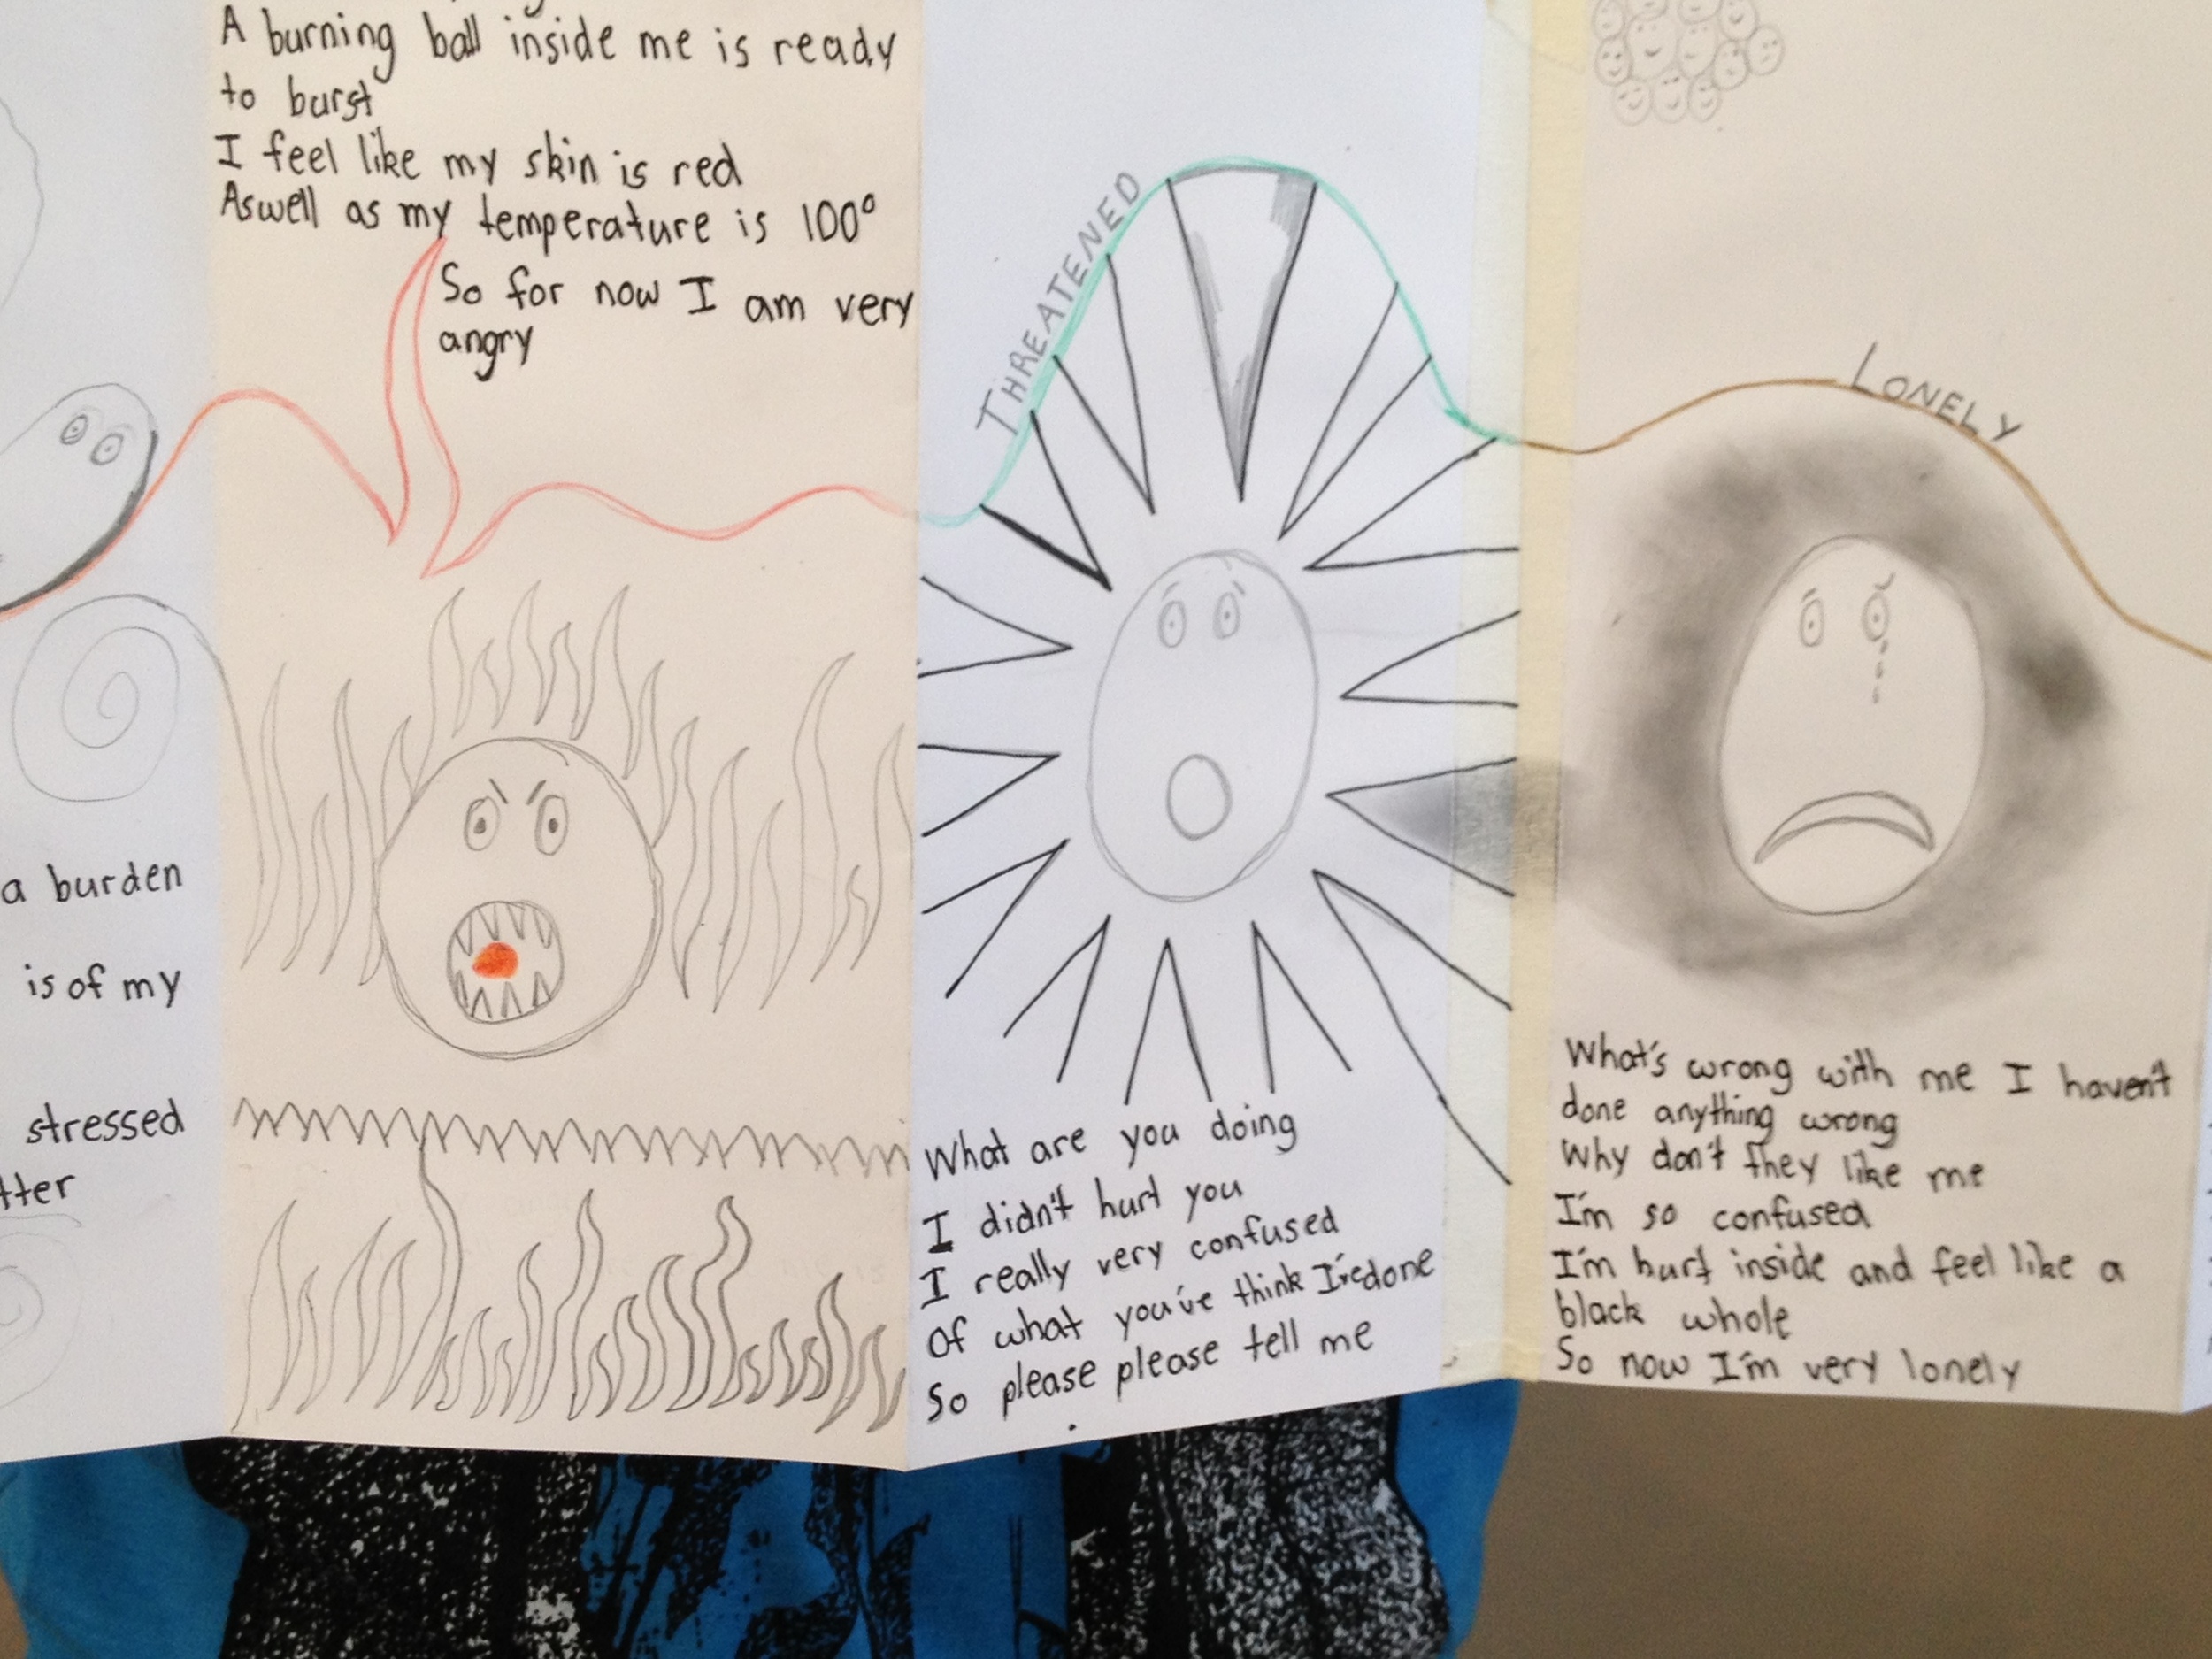 a burden
is of my
stressed
tter
A burning ball inside me is ready
to burst
I feel like my skin is red
Aswell as my temperature is 100°
So for now I am very
angry
THREATENED
What are you doing
I didn't hurt you
I really very confused
Of what you've think I've done
So please please tell me
LONELY
What's wrong with me I haven't
done anything wrong
Why don't they like me
I'm so confused
I'm hurt inside and feel like a
black whole
So now I'm very lonely